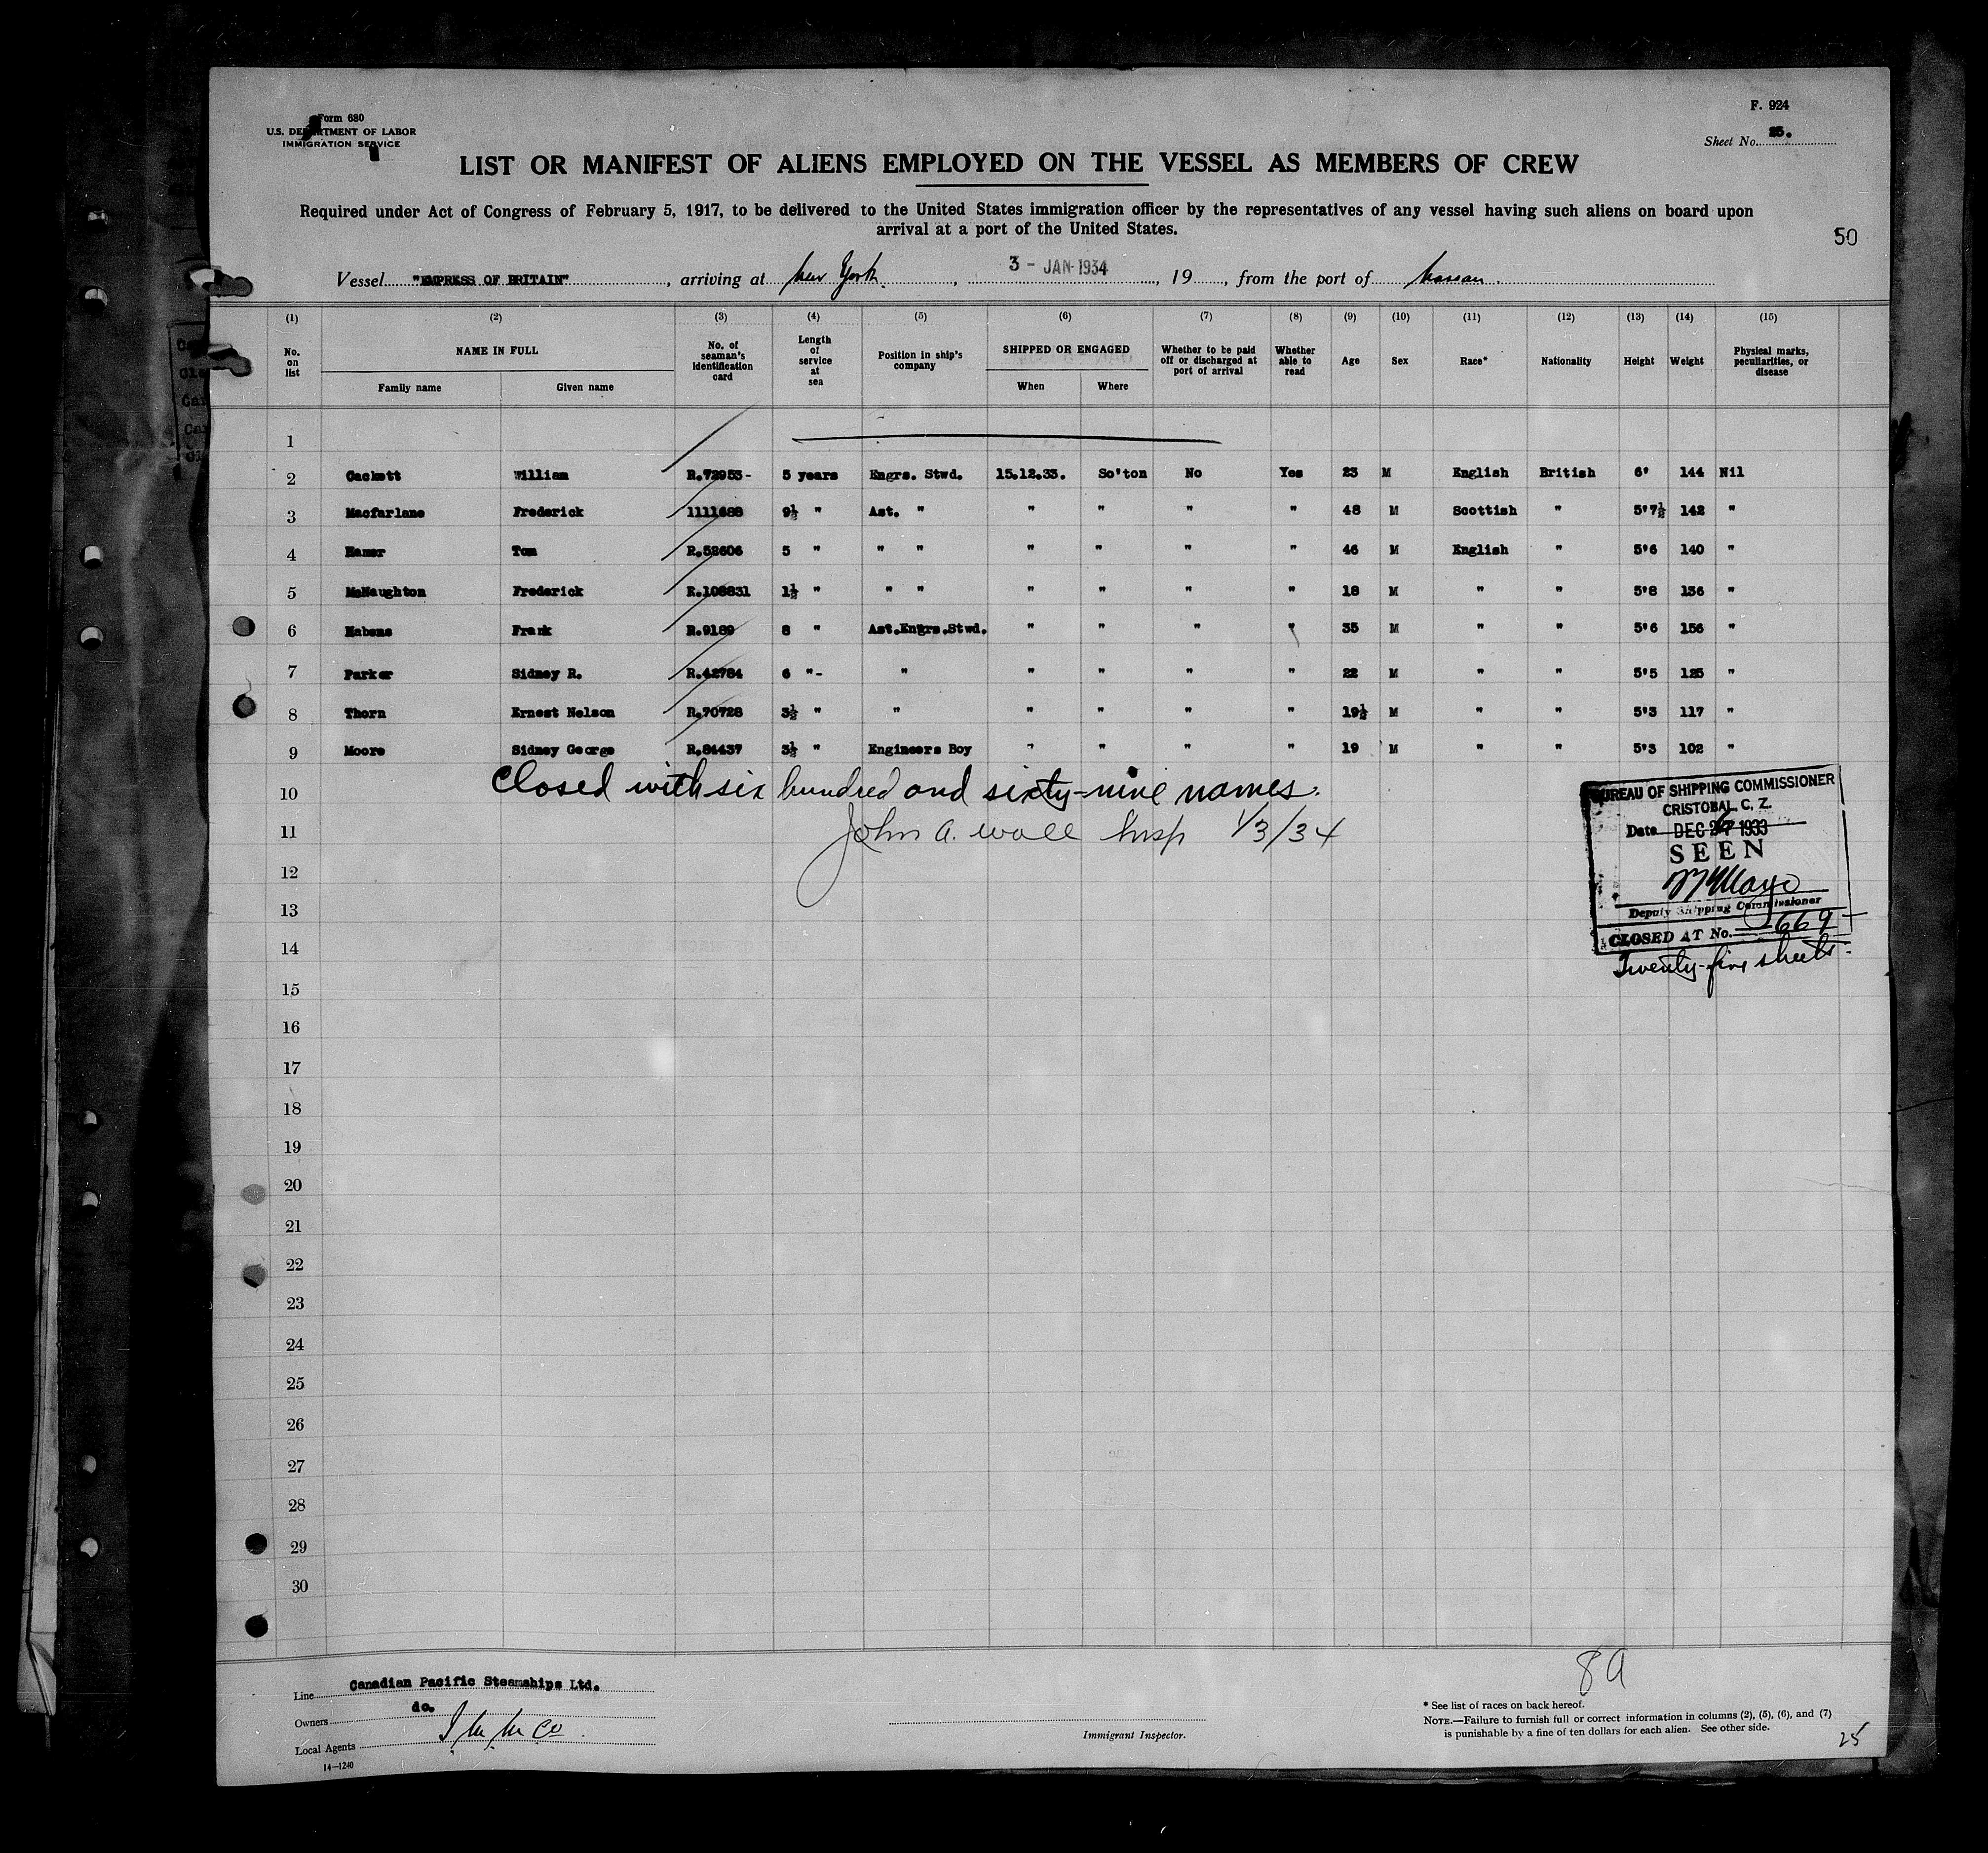 Form 680
U.S. DEPARTMENT OF LABOR
IMMIGRATION SERVICE
F. 924
Sheet No. 25.
LIST OR MANIFEST OF ALIENS EMPLOYED ON THE VESSEL AS MEMBERS OF CREW
Required under Act of Congress of February 5, 1917, to be delivered to the United States immigration officer by the representatives of any vessel having such aliens on board upon
arrival at a port of the United States.
50
Vessel "EMPRESS OF BRITAIN", arriving at New York, 3 - JAN 1934, 19, from the port of Nassau.
(1) (2) (3) (4) (5) (6) (7) (8) (9) (10) (11) (12) (13) (14) (15)
No. on list NAME IN FULL Family name Given name No. of seaman's identification card Length of service at sea Position in ship's company SHIPPED OR ENGAGED When Where Whether to be paid off or discharged at port of arrival Whether able to read Age Sex Race* Nationality Height Weight Physical marks, peculiarities, or disease
1
2 Cackett William R.72953- 5 years Engrs. Stwd. 15.12.33. So'ton No Yes 23 M English British 6' 144 Nil
3 Macfarlane Frederick 1111688 9½ " Ast. " " " " " 48 M Scottish " 5'7½ 142 "
4 Hamer Tom R.52606 5 " " " " " " " 46 M English " 5'6 140 "
5 McNaughton Frederick R.108831 1½ " " " " " " " 18 M " " 5'8 136 "
6 Habens Frank R.9189 8 " Ast.Engrs.Stwd. " " " " 35 M " " 5'6 156 "
7 Parker Sidney R. R.42784 6 "- " " " " " 22 M " " 5'5 125 "
8 Thorn Ernest Nelson R.70728 3½ " " " " " " 19½ M " " 5'3 117 "
9 Moore Sidney George R.84437 3½ " Engineers Boy " " " " 19 M " " 5'3 102 "
10 Closed with six hundred and sixty-nine names.
11 John A. Wall Insp 1/3/34
12
13
14
15
16
17
18
19
20
21
22
23
24
25
26
27
28
29
30
BUREAU OF SHIPPING COMMISSIONER
CRISTOBAL, C. Z.
Date DEC 1933
SEEN
Deputy Shipping Commissioner
CLOSED AT No. 669
Twenty-five sheets.
8A
Line Canadian Pacific Steamships Ltd.
Owners do.
Local Agents I M M Co.
14—1240
Immigrant Inspector.
* See list of races on back hereof.
NOTE.—Failure to furnish full or correct information in columns (2), (5), (6), and (7)
is punishable by a fine of ten dollars for each alien. See other side.
25